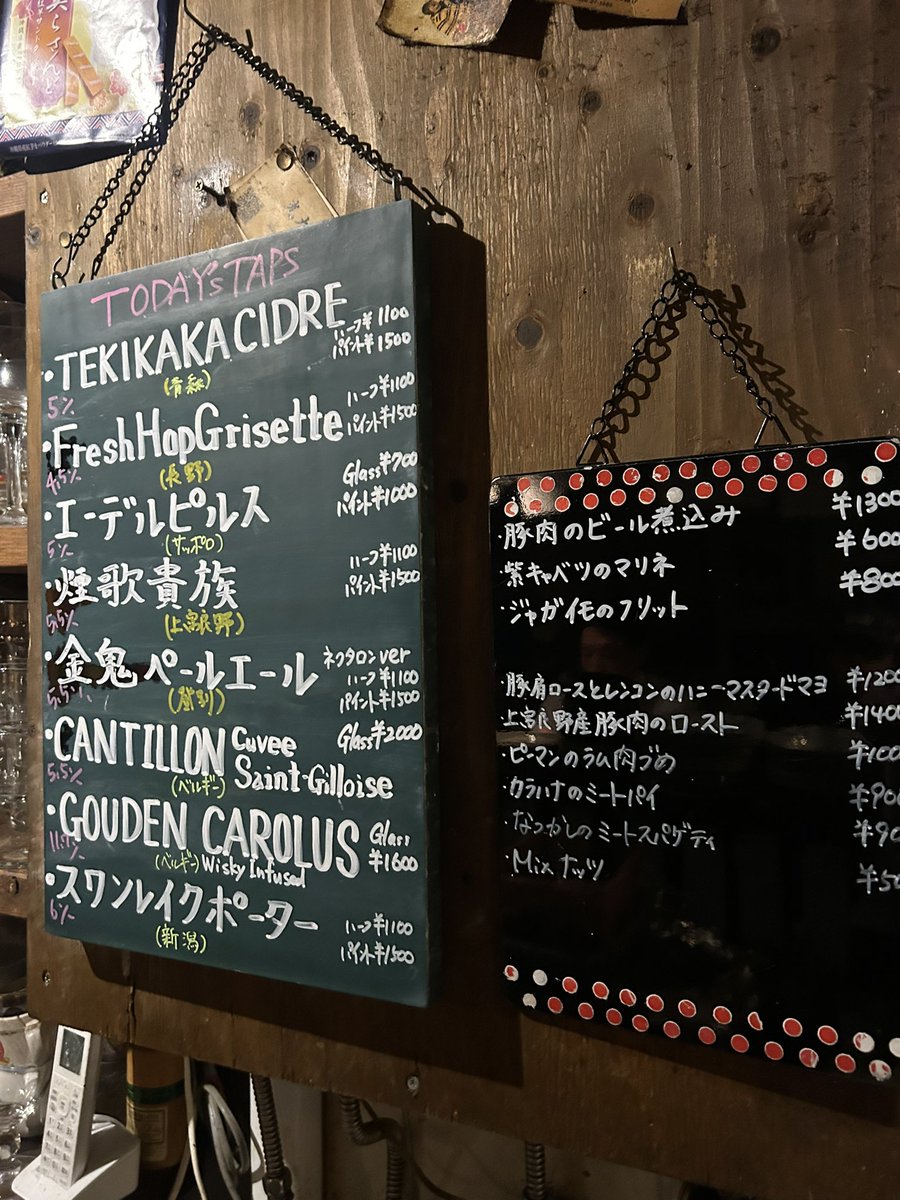 TODAY'S TAPS
・TEKIKAKA CIDRE
ハーフ¥1100
パイント¥1500
(青森)
5%
・Fresh Hop Grisette
ハーフ¥1100
パイント¥1500
(長野)
4.5%
・エーデルピルス
Glass¥700
パイント¥1000
(サッポロ)
5%
・煙歌貴族
ハーフ¥1100
パイント¥1500
(上富良野)
5.5%
・金鬼ペールエール
ネクタロンver
ハーフ¥1100
パイント¥1500
(登別)
5.5%
・CANTILLON Cuvee
Saint-Gilloise
Glass¥2000
(ベルギー)
5.5%
・GOUDEN CAROLUS
Glass
¥1600
(ベルギー) Wisky Infused
11.7%
・スワンレイクポーター
ハーフ¥1100
パイント¥1500
(新潟)
6%
・豚肉のビール煮込み ¥1300
・紫キャベツのマリネ ¥600
・ジャガイモのフリット ¥800
・豚肩ロースとレンコンのハニーマスタードマヨ ¥1200
・上富良野産豚肉のロースト ¥1400
・ピーマンのラム肉づめ
・カラハナのミートパイ
・なつかしのミートスパゲティ
・Mixナッツ